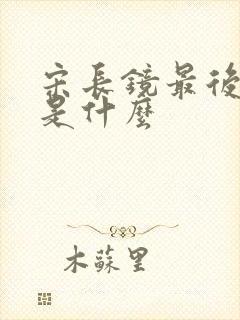 宋長鏡最後
是什麼
木蘇里